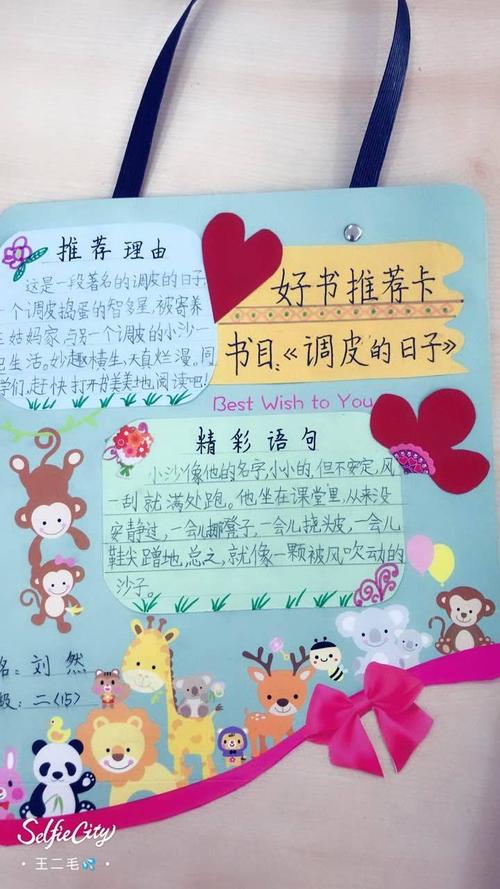 推荐理由
这是一段著名的调皮的日子,
一个调皮捣蛋的智多星,被寄养
姑妈家与另一个调皮的小沙一
生活。妙趣横生,天真烂漫,同
学们,赶快打开美美地阅读吧!
好书推荐卡
书目:《调皮的日子》
Best Wish to You
精彩语句
小沙像他的名字,小小的,但不安定,风
一刮就满处跑。他坐在课堂里,从来没
安静过,一会儿挪凳子,一会儿挠头皮,一会儿
鞋尖蹭地,总之,就像一颗被风吹动的
沙子。
名:刘然
级:二(15)
SelfieCity
·王二毛💦·